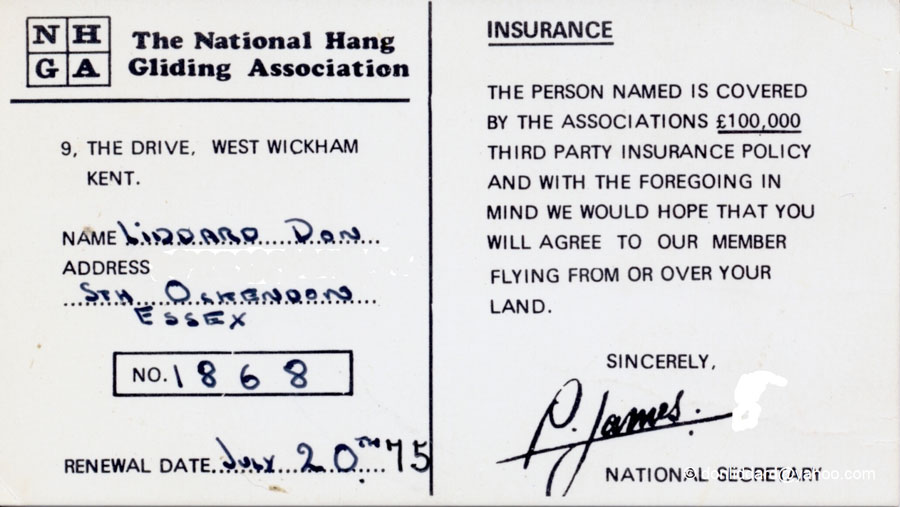 NH
GA
The National Hang
Gliding Association
9, THE DRIVE, WEST WICKHAM
KENT.
NAME LIDDARD DON
ADDRESS
STH OCKENDON
ESSEX
NO. 1868
RENEWAL DATE July 20TH 75
INSURANCE
THE PERSON NAMED IS COVERED
BY THE ASSOCIATIONS £100,000
THIRD PARTY INSURANCE POLICY
AND WITH THE FOREGOING IN
MIND WE WOULD HOPE THAT YOU
WILL AGREE TO OUR MEMBER
FLYING FROM OR OVER YOUR
LAND.
SINCERELY,
P. James.
NATIONAL SECRETARY